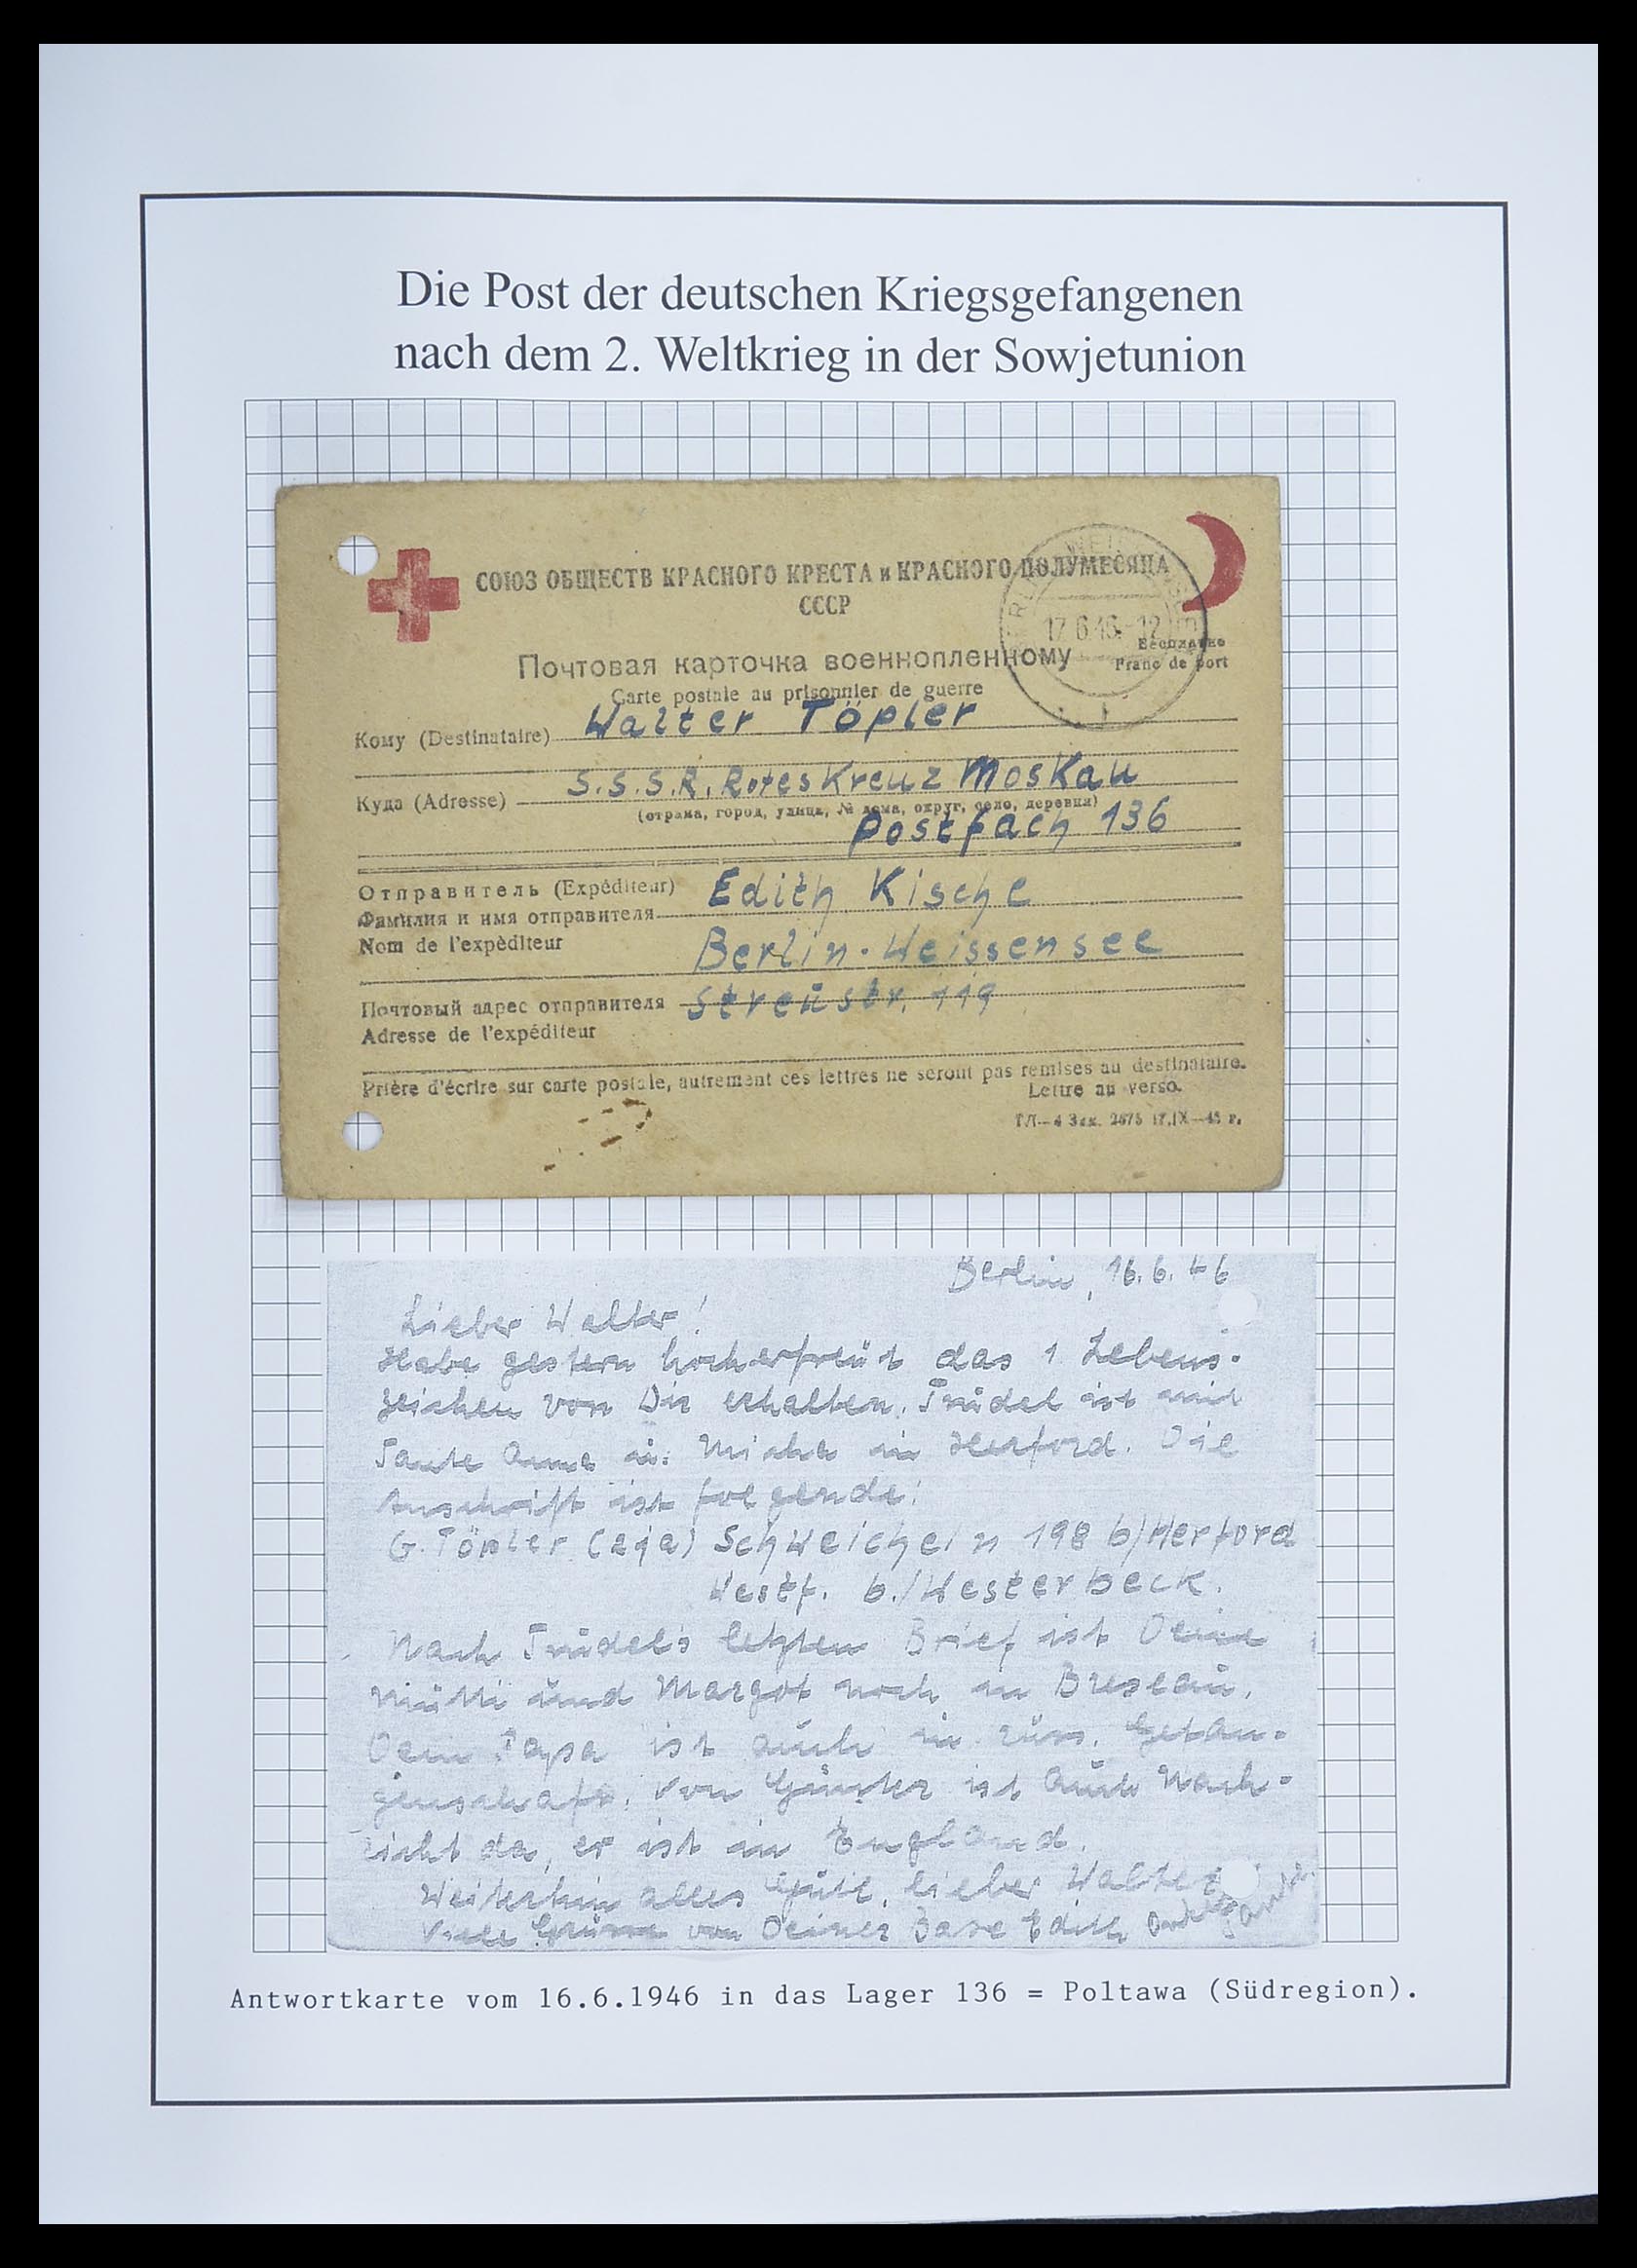 Die Post der deutschen Kriegsgefangenen
nach dem 2. Weltkrieg in der Sowjetunion
СОЮЗ ОБЩЕСТВ КРАСНОГО КРЕСТА и КРАСНОГО ПОЛУМЕСЯЦА
СССР
17.6.46.-12
Бесплатно
Franc de port
Почтовая карточка военнопленному
Carte postale au prisonnier de guerre
Кому (Destinataire) Walter Töpler
Куда (Adresse) S.S.S.R. Rotes Kreuz Moskau
(страна, город, улица, № дома, округ, село, деревня)
Postfach 136
Отправитель (Expéditeur) Edith Kische
Фамилия и имя отправителя
Nom de l'expèditeur Berlin-Weissensee
Почтовый адрес отправителя Streustr. 119
Adresse de l'expéditeur
Prière d'écrire sur carte postale, autrement ces lettres ne seront pas remises au destinataire.
Lettre au verso.
ТЛ—4 Зак. 2675 17.IX—45 г.
Berlin, 16.6.46
Lieber Walter!
Habe gestern hocherfreut das 1 Lebens-
zeichen von Dir erhalten. Trudel ist mit
Tante Anna u. Micha in Herford. Die
Anschrift ist folgende:
G. Töpler (21a) Schweicheln 198 b/Herford
Westf. b./Westerbeck.
Nach Trudel's letzten Brief ist Deine
Mutti und Margot noch in Breslau.
Dein Papa ist auch in russ. Gefan-
genschaft. Von Günter ist auch Nach-
richt da, er ist in England.
Weiterhin alles Gute, lieber Walter
Viele Grüsse von Deiner Base Edith
Antwortkarte vom 16.6.1946 in das Lager 136 = Poltawa (Südregion).